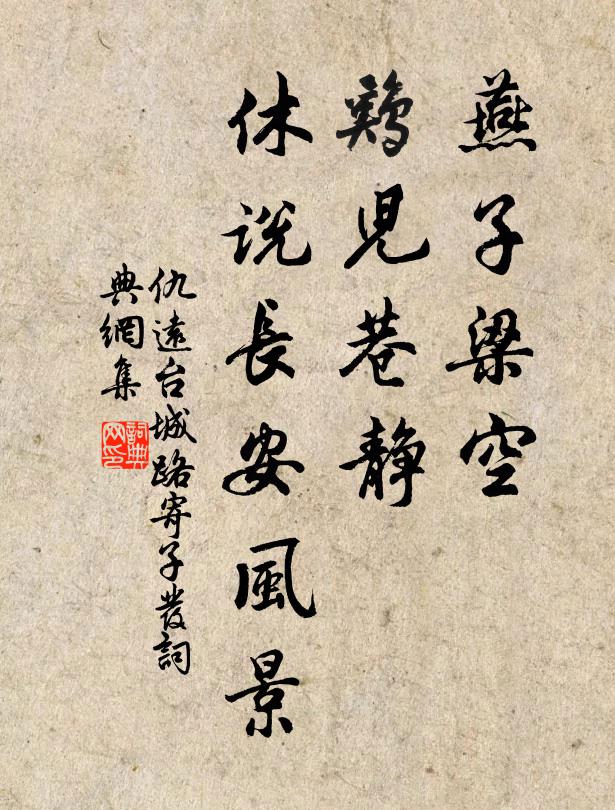 燕子梁空
鷄兒巷静
休说長安風景
仇遠台城路寄子發詞
典網集
詞典
网印